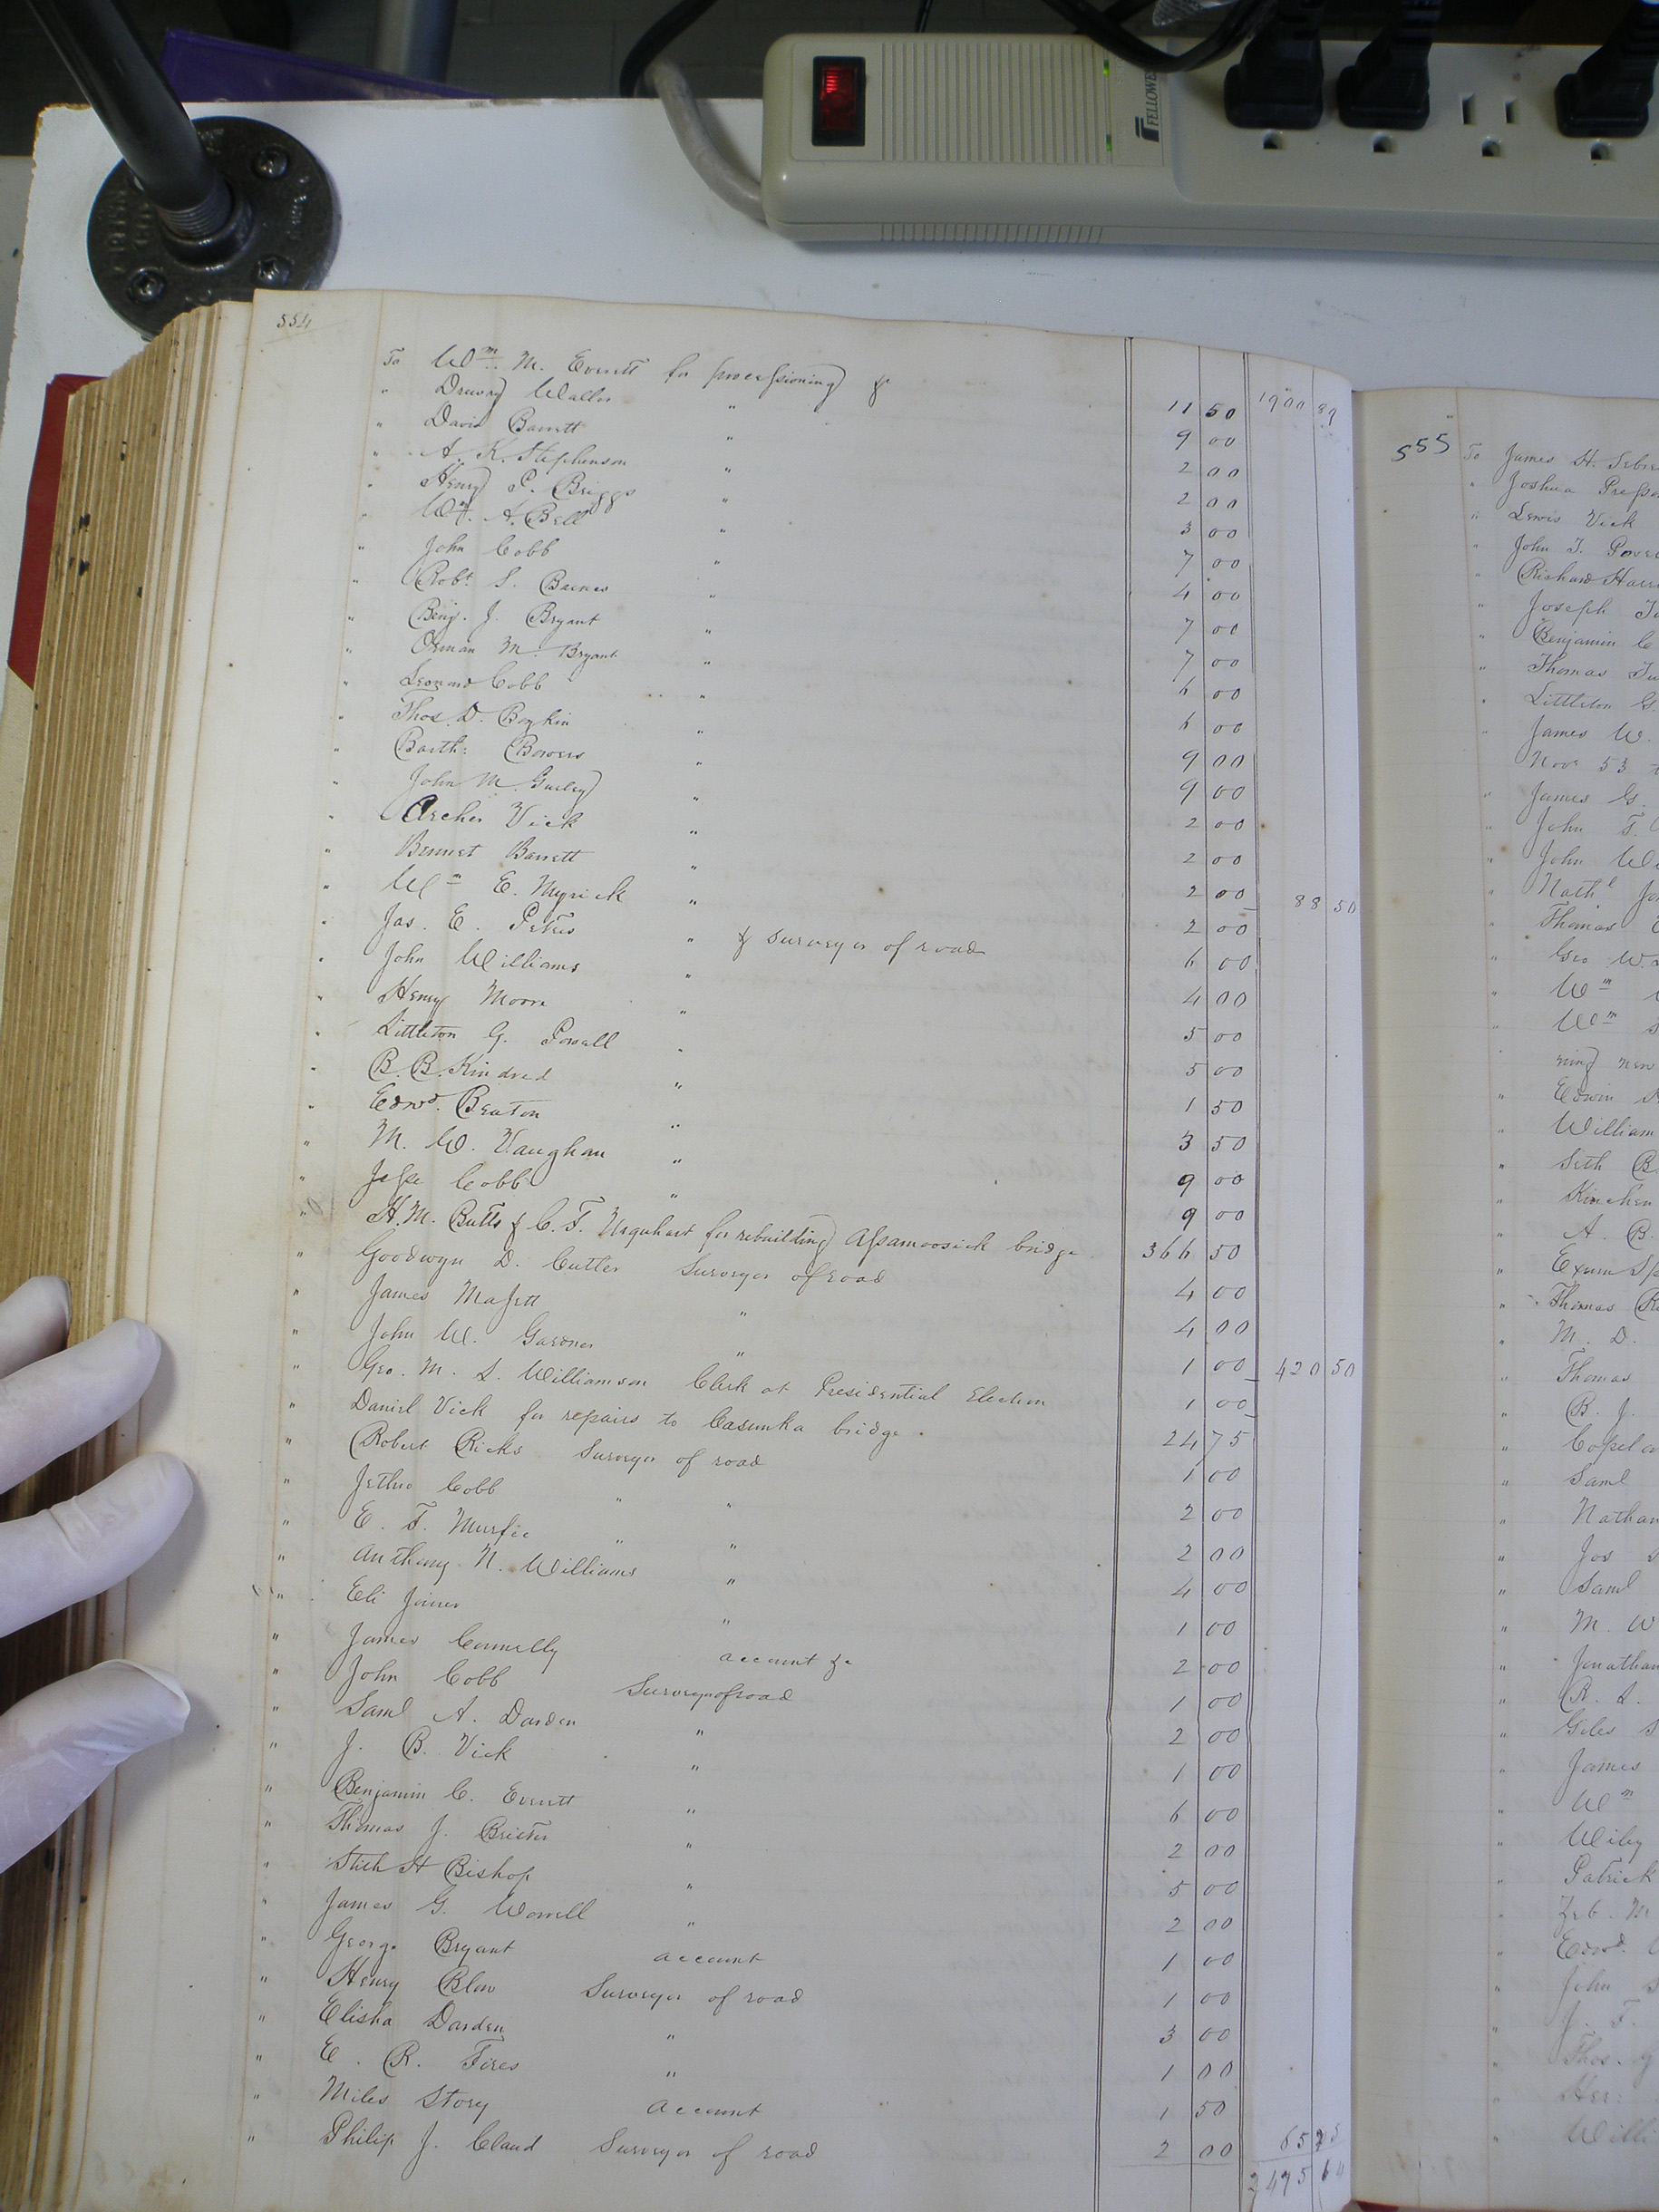 FELLOWES
554
To Wm. M. Everett for processioning &c 1900 89
" Drewry Waller " 11 50
" David Barrett " 9 00
" A. K. Stephenson " 2 00
" Henry P. Briggs " 2 00
" Wm. A. Bell " 3 00
" John Cobb " 7 00
" Robt S. Barnes " 4 00
" Benj. J. Bryant " 7 00
" Orman M. Bryant " 7 00
" Leonard Cobb " 6 00
" Thos. D. Boykin " 6 00
" Barth: Bowers " 9 00
" John M. Gurley " 9 00
" Archer Vick " 2 00
" Bennet Barrett " 2 00
" Wm E. Myrick " 2 00 88 50
" Jas. E. Peters " & surveyor of road 2 00
" John Williams " 6 00
" Henry Moore " 4 00
" Littleton G. Powell " 5 00
" B. B. Kindred " 5 00
" Edwd. Beaton " 1 50
" M. W. Vaughan " 3 50
" Jesse Cobb " 9 00
" H. M. Butts & C. F. Urquhart for rebuilding Assamoosick bridge 9 00
" Goodwyn D. Cutler Surveyor of road 366 50
" James Massett " 4 00
" John W. Gardner " 4 00
" Geo. M. S. Williamson Clerk at Presidential Election 1 00 420 50
" Daniel Vick for repairs to Casunka bridge. 1 00
" Robert Ricks Surveyor of road 24 75
" Jethro Cobb " " 1 00
" E. F. Murfee " " 2 00
" Anthony N. Williams " 2 00
" Eli Joiner " 4 00
" James Connelly account &c 1 00
" John Cobb Surveyor of road 2 00
" Saml A. Darden " 1 00
" J. B. Vick " 2 00
" Benjamin C. Everett " 1 00
" Thomas J. Brister " 6 00
" Stith H Bishop " 2 00
" James G. Worrell " 5 00
" George Bryant account 2 00
" Henry Blow Surveyor of road 1 00
" Elisha Darden " 1 00
" E. R. Fires " 3 00
" Miles Story account 1 00
" Philip J. Claud Surveyor of road 1 50
2 00 65 75
2475 64
555
To James H.
" Joshua
" Lewis Vick
" John T.
" Richard
" Joseph
" Benjamin C
" Thomas
" Littleton G.
" James W.
Novr 53
" James G.
" John T.
" John W
" Nathl
" Thomas
" Geo W.
" Wm
" Wm
ring new
" Edwin
" William
" Seth B.
" Kinchen
" A. B.
" Exum
" Thomas
" M. D.
" Thomas
" B. J.
" Copel
" Saml
" Nathan
" Jos
" Saml
" M. W
" Jonathan
" R. S.
" Giles
" James
" Wm
" Wiley
" Patrick
" Zeb. M
" Edwd.
" John
" J. F.
" Thos.
" Willi